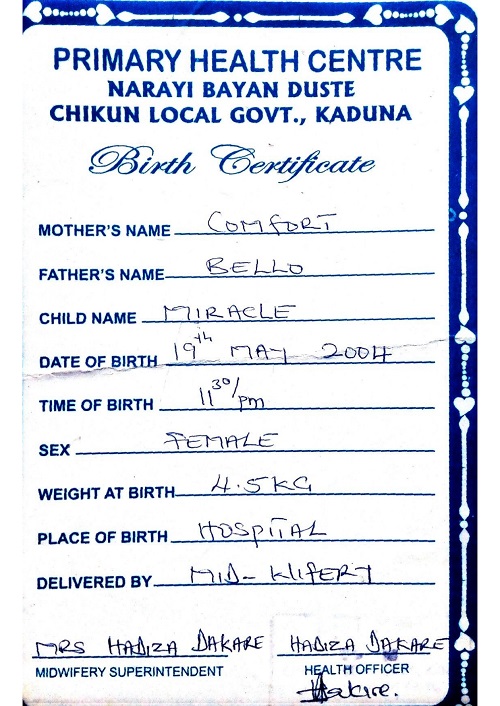 PRIMARY HEALTH CENTRE
NARAYI BAYAN DUSTE
CHIKUN LOCAL GOVT., KADUNA
Birth Certificate
MOTHER'S NAME COMFORT
FATHER'S NAME BELLO
CHILD NAME MIRACLE
DATE OF BIRTH 19th MAY 2004
TIME OF BIRTH 11 30/pm
SEX FEMALE
WEIGHT AT BIRTH 4.5KG
PLACE OF BIRTH HOSPITAL
DELIVERED BY MID-
MRS HADIZA DAKARE HADIZA DAKARE
MIDWIFERY SUPERINTENDENT HEALTH OFFICER